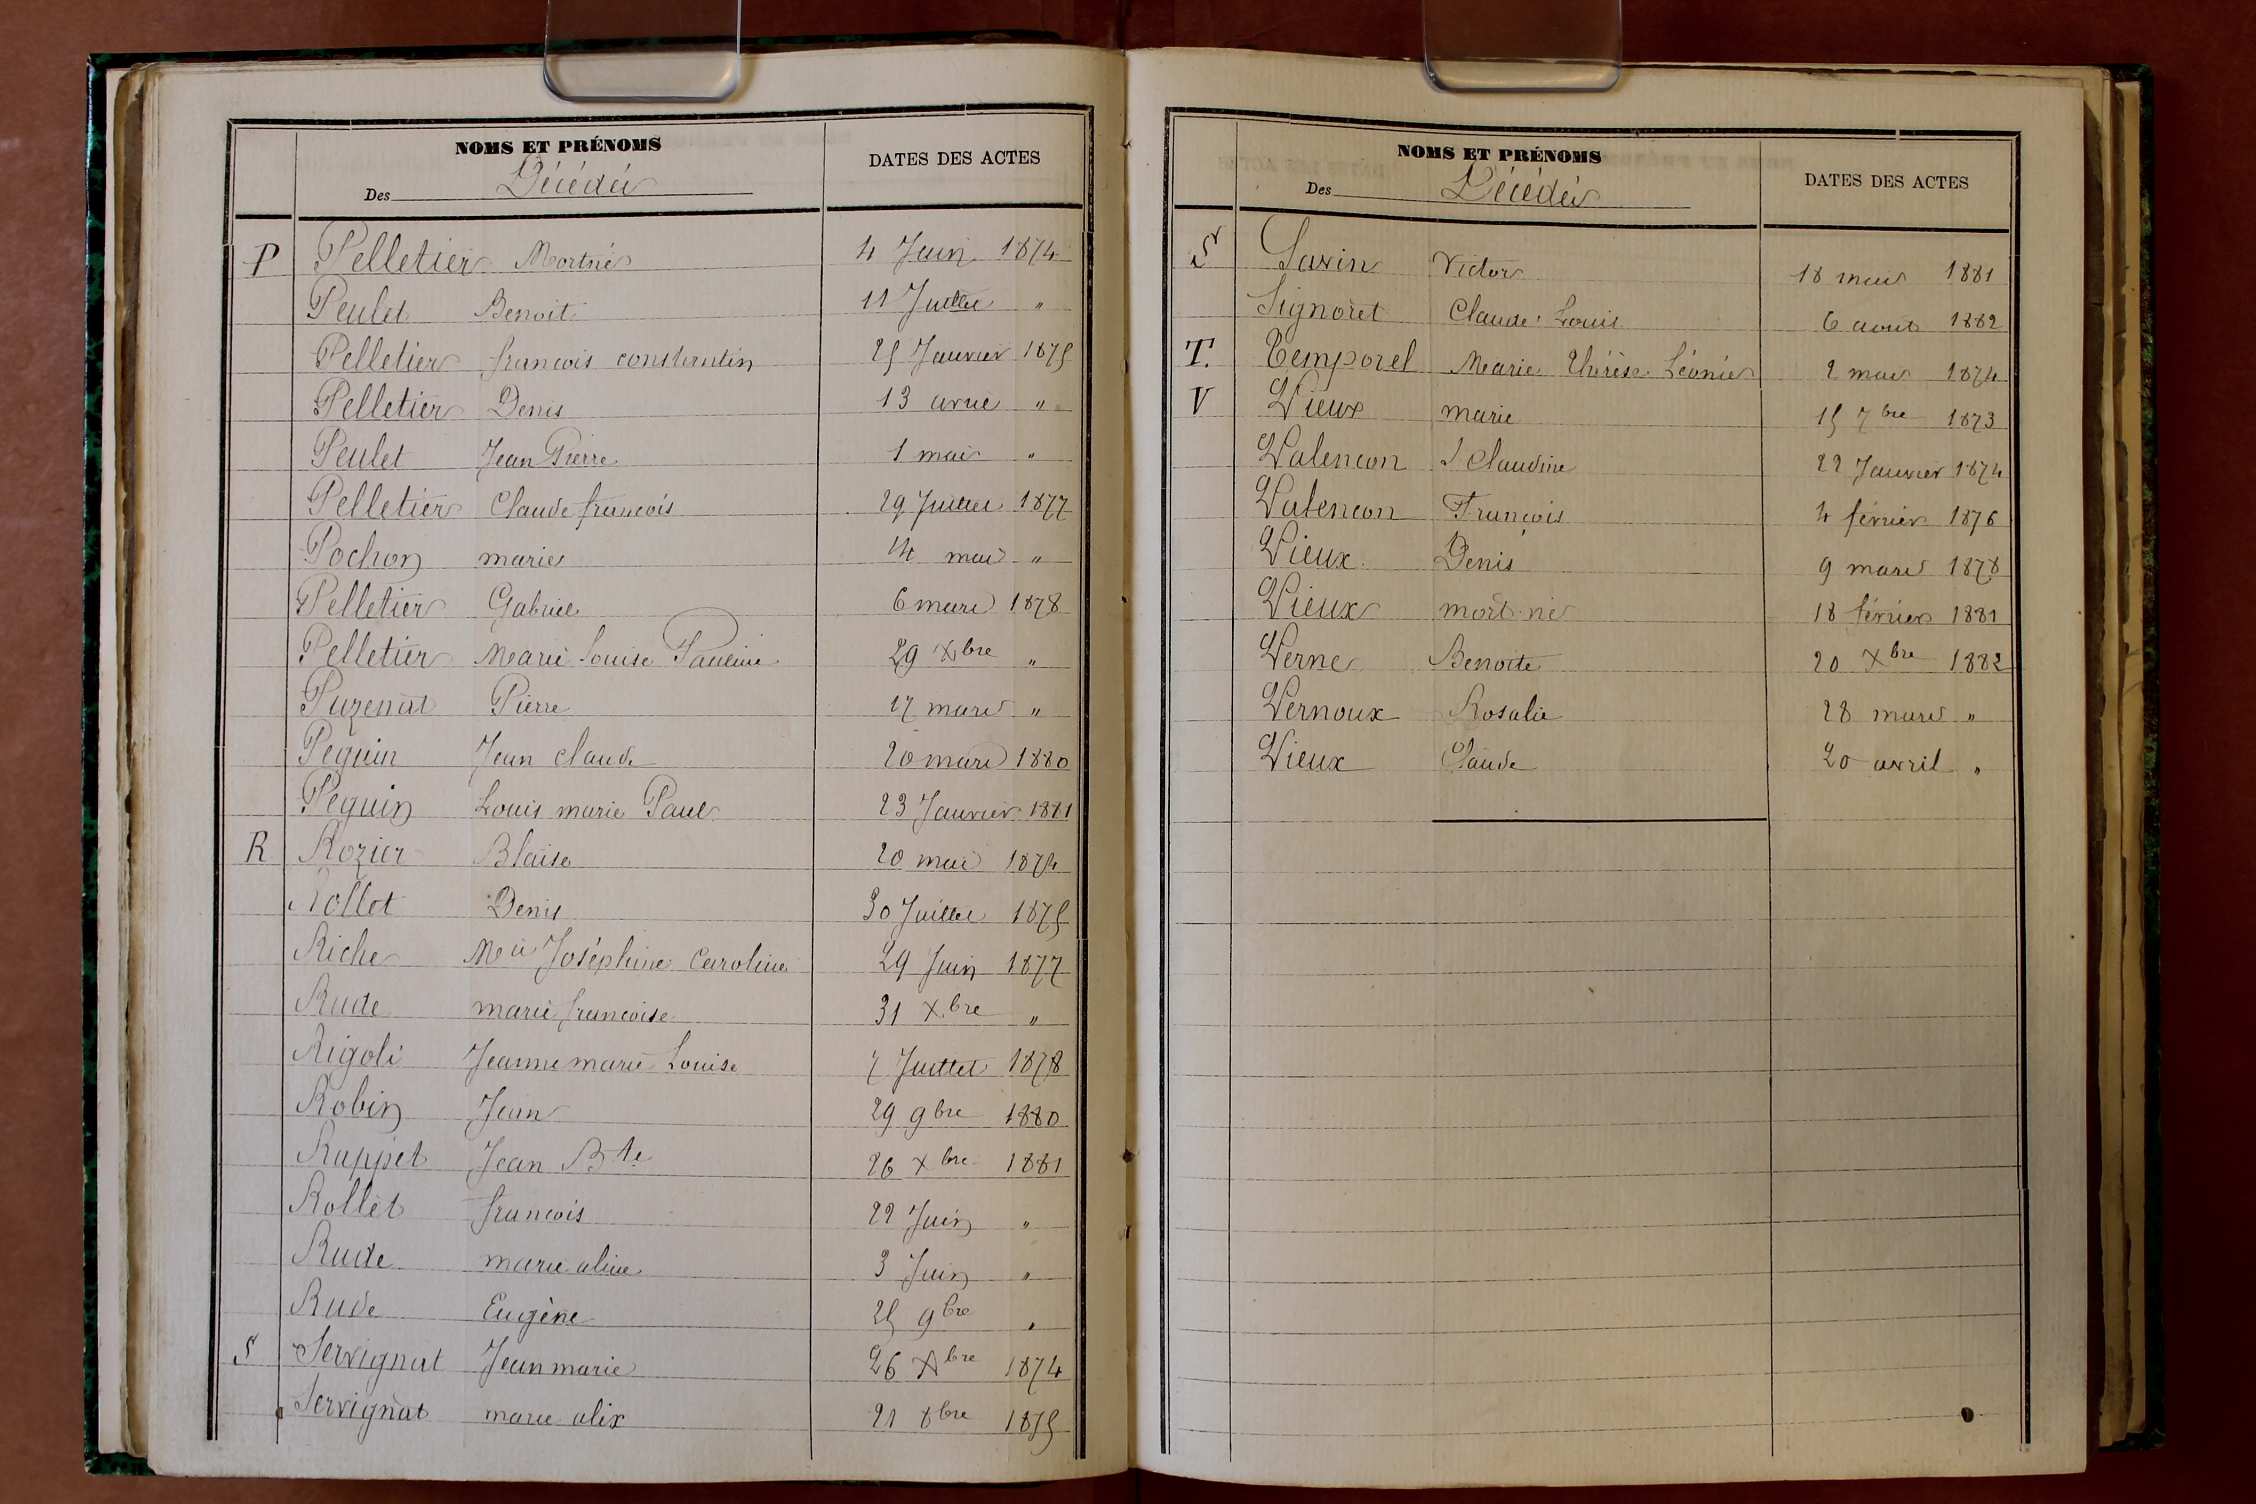 NOMS ET PRÉNOMS
DATES DES ACTES
Des Décédés
P Pelletier Mortné 4 Juin 1874
Peulet Benoit 11 Juillet "
Pelletier françois constantin 25 Janvier 1875
Pelletier Denis 13 avril "
Peulet Jean Pierre 1 mai "
Pelletier Claude françois 29 Juillet 1877
Pochon marie 14 mai "
Pelletier Gabriel 6 mars 1878
Pelletier Marie Louise Pauline 29 Xbre "
Puzenat Pierre 17 mars "
Peguin Jean claude 20 mars 1880
Peguin Louis marie Paul 23 Janvier 1881
R Rozier Blaise 20 mai 1874
Rollet Denis 30 Juillet 1875
Riche Mie Joséphine Caroline 29 Juin 1877
Rude marie françoise 31 Xbre "
Rigoli Jeanne marie Louise 7 Juillet 1878
Robin Jean 29 9bre 1880
Rappet Jean Bte 26 Xbre 1881
Rollet françois 22 Juin "
Rude marie aline 3 Juin "
Rude Eugène 25 9bre "
S Servignat Jean marie 26 Xbre 1874
Servignat marie alix 21 8bre 1875
NOMS ET PRÉNOMS
DATES DES ACTES
Des Décédés
S Savin Victor 18 1881
Signoret Claude Louis 6 aout 1882
T. Temporel Marie Thérèse Léonie 2 1874
V Vieux marie 15 7bre 1873
Valencon Claudine 22 Janvier 1874
Valencon François 4 février 1876
Vieux Denis 9 mars 1878
Vieux mort-né 18 février 1881
Verne Benoite 20 Xbre 1882
Vernoux Rosalie 28 mars "
Vieux Claude 20 avril "